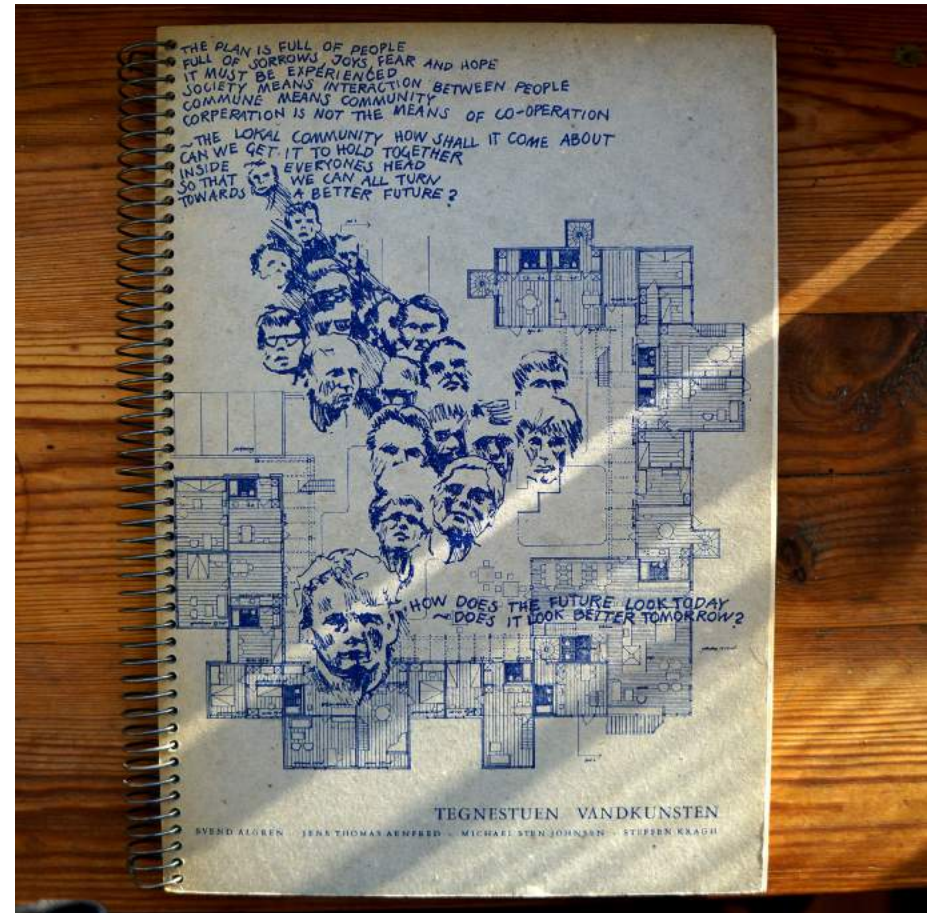 THE PLAN IS FULL OF PEOPLE
FULL OF SORROWS JOYS FEAR AND HOPE
IT MUST BE EXPERIENCED
SOCIETY MEANS INTERACTION BETWEEN PEOPLE
COMMUNE MEANS COMMUNITY
CORPERATION IS NOT THE MEANS OF CO-OPERATION
~THE LOKAL COMMUNITY HOW SHALL IT COME ABOUT
CAN WE GET IT TO HOLD TOGETHER
INSIDE EVERYONES HEAD
SO THAT WE CAN ALL TURN
TOWARDS A BETTER FUTURE?
HOW DOES THE FUTURE LOOK TODAY
~ DOES IT LOOK BEITER TOMORROW?
TEGNESTUEN VANDKUNSTEN
SVEND ALGREN - JENS THOMAS ARNFRED - MICHAEL STEN JOHNSEN - STEFFEN KRAGH